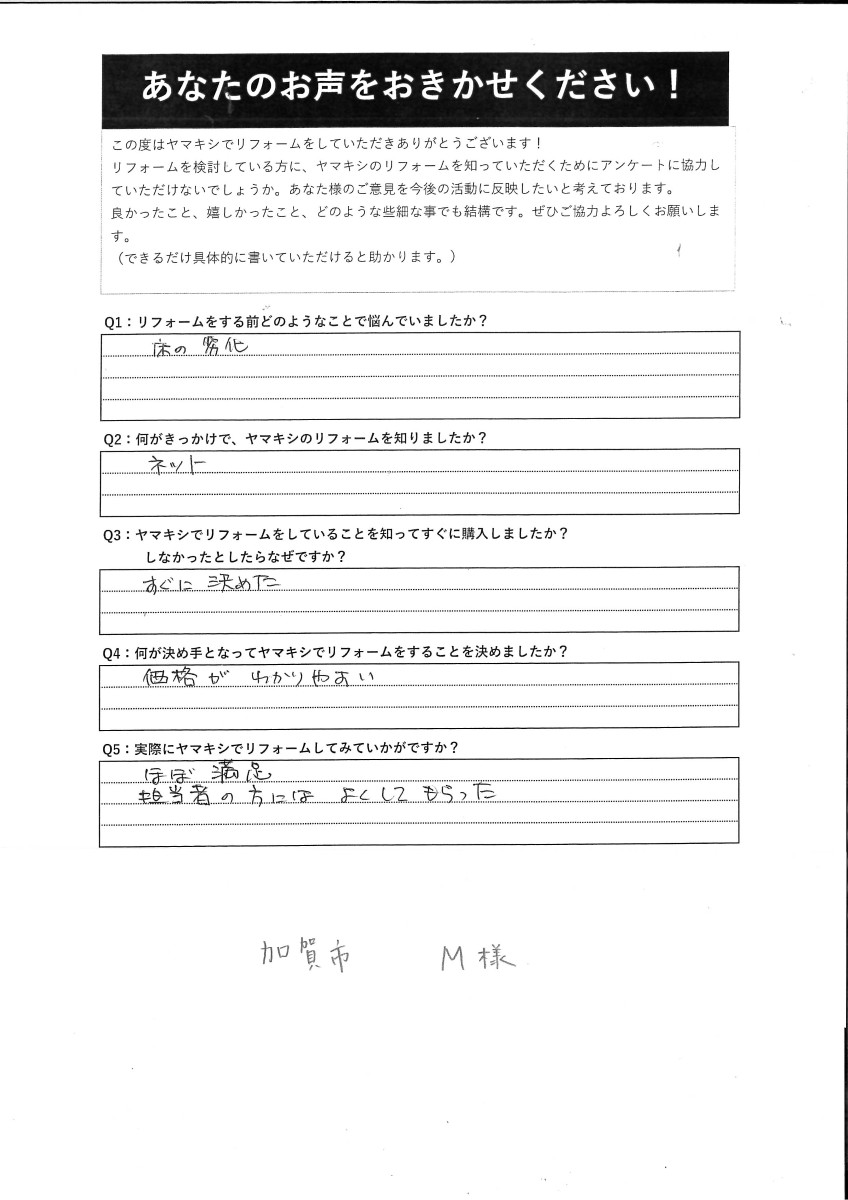 あなたのお声をおきかせください！
この度はヤマキシでリフォームをしていただきありがとうございます！
リフォームを検討している方に、ヤマキシのリフォームを知っていただくためにアンケートに協力し
ていただけないでしょうか。あなた様のご意見を今後の活動に反映したいと考えております。
良かったこと、嬉しかったこと、どのような些細な事でも結構です。ぜひご協力よろしくお願いしま
す。
（できるだけ具体的に書いていただけると助かります。）
Q1：リフォームをする前どのようなことで悩んでいましたか？
床の 劣化
Q2：何がきっかけで、ヤマキシのリフォームを知りましたか？
ネット
Q3：ヤマキシでリフォームをしていることを知ってすぐに購入しましたか？
しなかったとしたらなぜですか？
すぐに 決めた
Q4：何が決め手となってヤマキシでリフォームをすることを決めましたか？
価格が わかりやすい
Q5：実際にヤマキシでリフォームしてみていかがですか？
ほぼ 満足
担当者の方には よくしてもらった
加賀市 M様